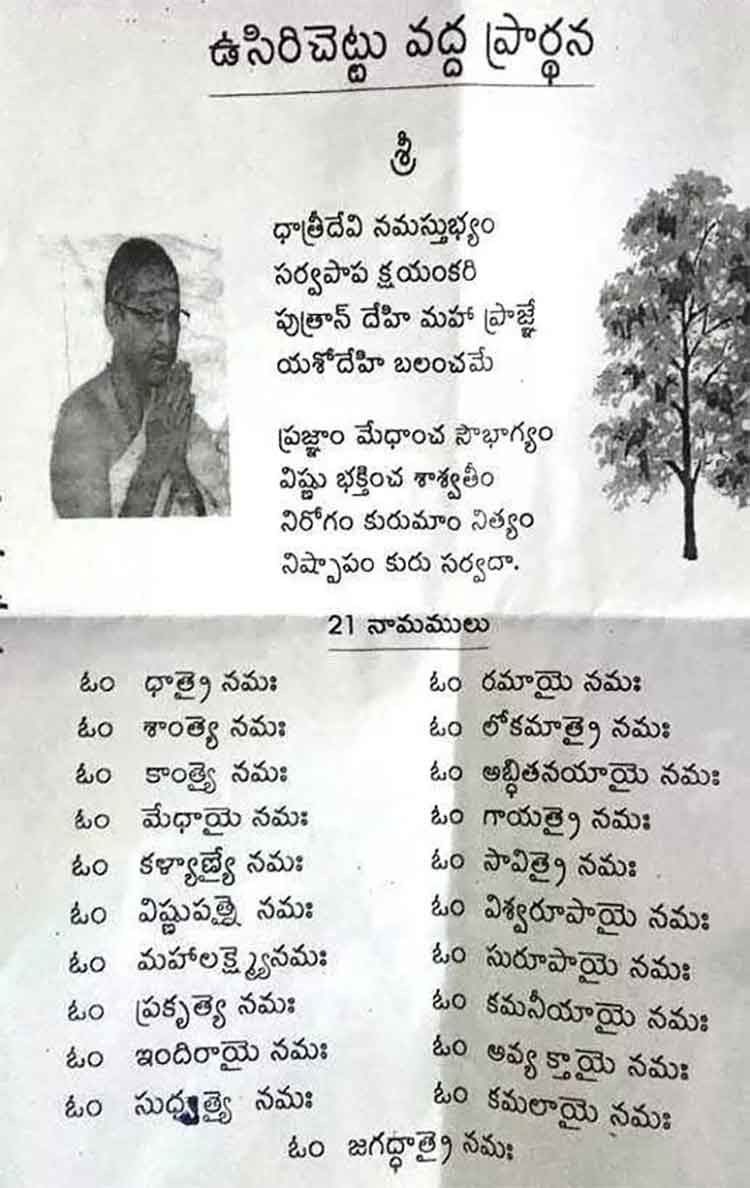 ఉసిరిచెట్టు వద్ద ప్రార్థన
శ్రీ
ధాత్రీదేవి నమస్తుభ్యం
సర్వపాప క్షయంకరి
పుత్రాన్ దేహి మహా ప్రాజ్ఞే
యశోదేహి బలంచమే
ప్రజ్ఞాం మేధాంచ సౌభాగ్యం
విష్ణు భక్తించ శాశ్వతీం
నిరోగం కురుమాం నిత్యం
నిష్పాపం కురు సర్వదా.
21 నామములు
ఓం ధాత్ర్యై నమః
ఓం శాంత్యై నమః
ఓం కాంత్యై నమః
ఓం మేధాయై నమః
ఓం కళ్యాణ్యై నమః
ఓం విష్ణుపత్నై నమః
ఓం మహాలక్ష్మ్యైనమః
ఓం ప్రకృత్యై నమః
ఓం ఇందిరాయై నమః
ఓం నమః
ఓం రమాయై నమః
ఓం లోకమాత్రై నమః
ఓం అబ్ధితనయాయై నమః
ఓం గాయత్రై నమః
ఓం సావిత్రై నమః
ఓం విశ్వరూపాయై నమః
ఓం సురూపాయై నమః
ఓం కమనీయాయై నమః
ఓం అవ్యక్తాయై నమః
ఓం కమలాయై నమః
ఓం జగద్ధాత్రై నమః